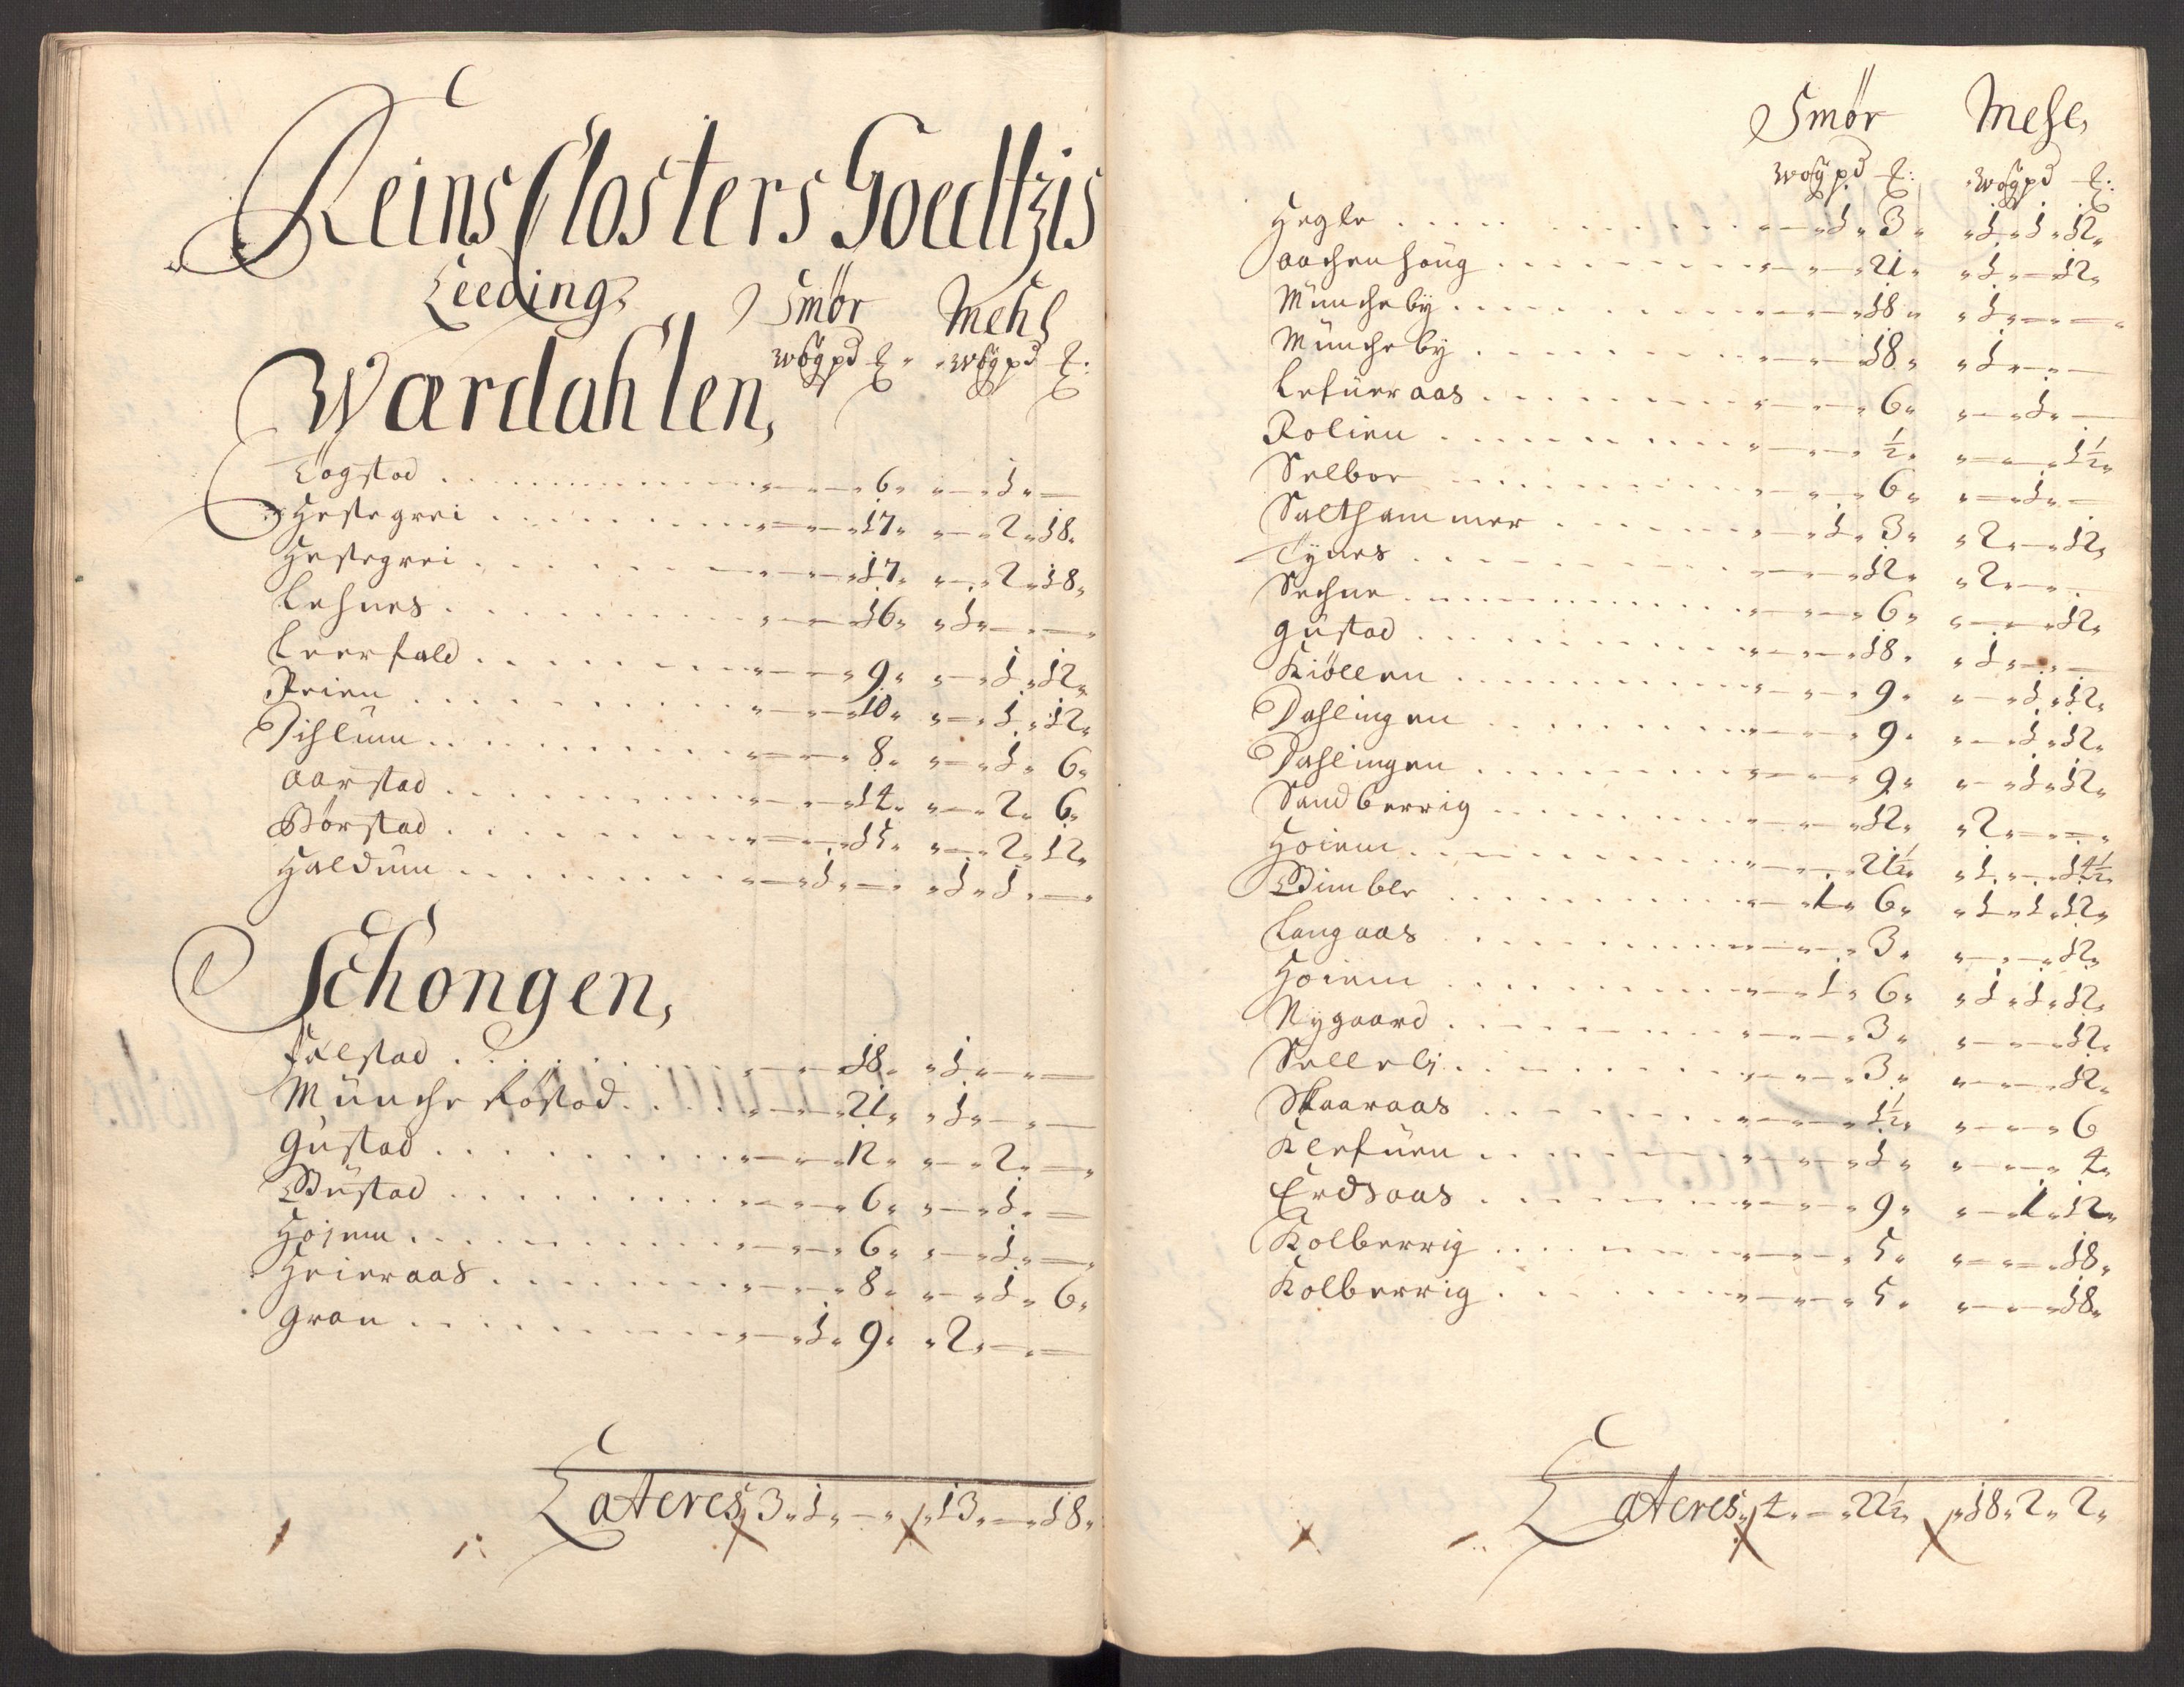 Reins Closters Goedtzis
Leeding,
Smør Mehl
wog pd £ wog pd £:
Wærdahlen,
Togstad — — 6 — 1 —
Hestegrei — — 17 — 2 18
Hestegrei — — 17 — 2 18
Lehnes — — 16 1 — —
Leerfald — — 9 — 1 12
Reien — — 10 — 1 12
Dihlum — — 8 — 1 6
Aarstad — — 14 — 2 6
Børstad — — 15 — 2 12
Haldum — 1 — 1 1 —
Schongen,
Falstad — — 18 1 — —
Münche Røstad — — 21 1 — —
Gustad — — 12 — 2 —
Bustad — — 6 — 1 —
Hojem — — 6 — 1 —
Heieraas — — 8 — 1 6
Gran — 1 9 2 — —
Lateres 3 1 — 13 — 18
Smør Mehl,
wog pd £: wog pd £:
Hegle — 1 3 1 1 12
Aachenhoug — — 21 1 — 12
Müncheby — — 18 1 — —
Müncheby — — 18 1 — —
Lefueraas — — 6 — 1 —
Rolien — — ½ — — 1½
Selboe — — 6 — 1 —
Salthammer — 1 3 2 — 12
Tynes — — 12 2 — —
Sechne — — 6 — — 12
Gustad — — 18 1 — —
Kiöllen — — 9 — 1 12
Dahlingen — — 9 — 1 12
Dahlingen — — 9 — 1 12
Sandberrig — — 12 2 — —
Hoiem — — 21½ 1 — 14½
Wimble — 1 6 1 1 12
Langaas — — 3 — — 12
Hoiem — 1 6 1 1 12
Nygaard — — 3 — — 12
Selleli — — 3 — — 12
Skaaraas — — 1½ — — 6
Klefuen — — 1 — — 4
Erdsaas — — 9 — 1 12
Kolberrig — — 5 — — 18
Kolberrig — — 5 — — 18
Lateres 4 — 22½ 18 2 2